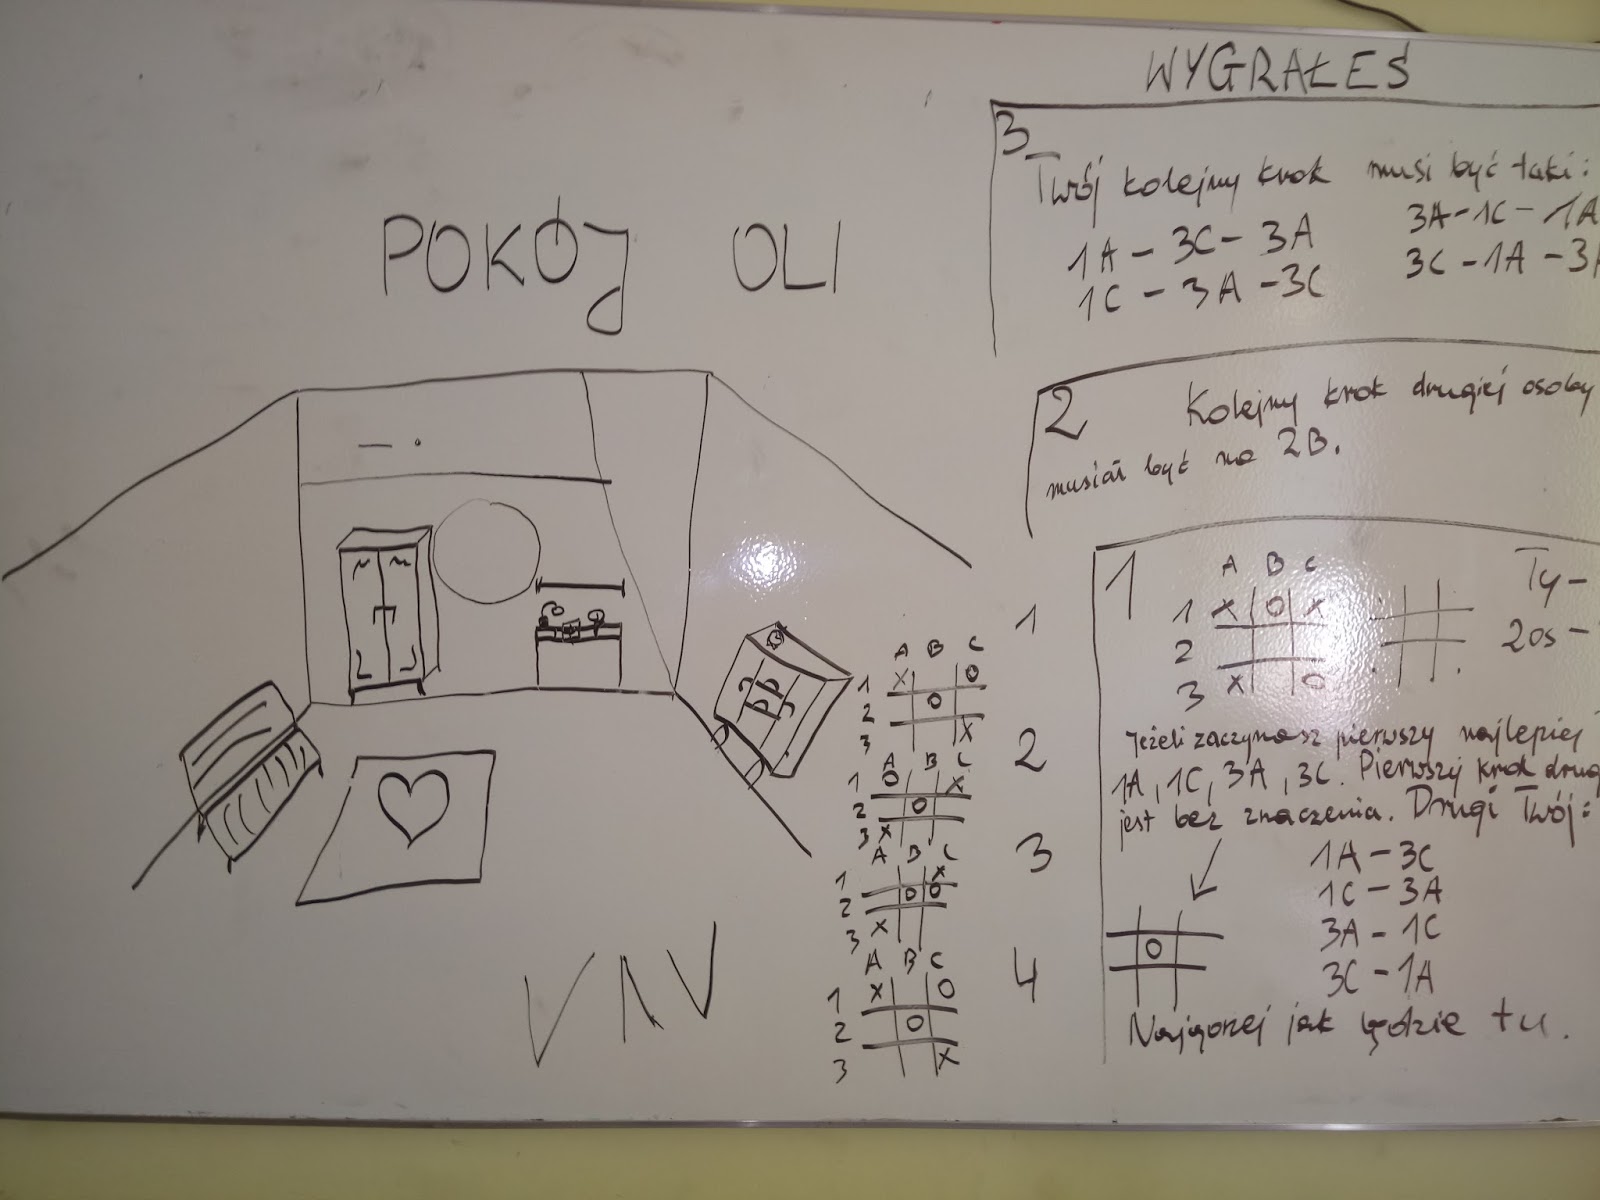 POKÓJ OLI
WYGRAŁEŚ
3
Twój kolejny krok musi być taki:
1A - 3C - 3A 3A - 1C - 1A
1C - 3A - 3C 3C - 1A - 3A
2 Kolejny krok drugiej osoby
musiał być na 2B.
1
A B C
1 X O X
2
3 X O
Ty -
2os -
Jeżeli zaczynasz pierwszy najlepiej
1A, 1C, 3A, 3C. Pierwszy krok drug
jest bez znaczenia. Drugi Twój:
1A - 3C
1C - 3A
3A - 1C
3C - 1A
O
Najgorzej jak będzie tu.
1
A B C
1 X O
2 O
3 X
2
A B C
1 O X
2 O
3 X
3
A B C
1 X
2 O O
3 X
4
A B C
1 X O
2 O
3 X